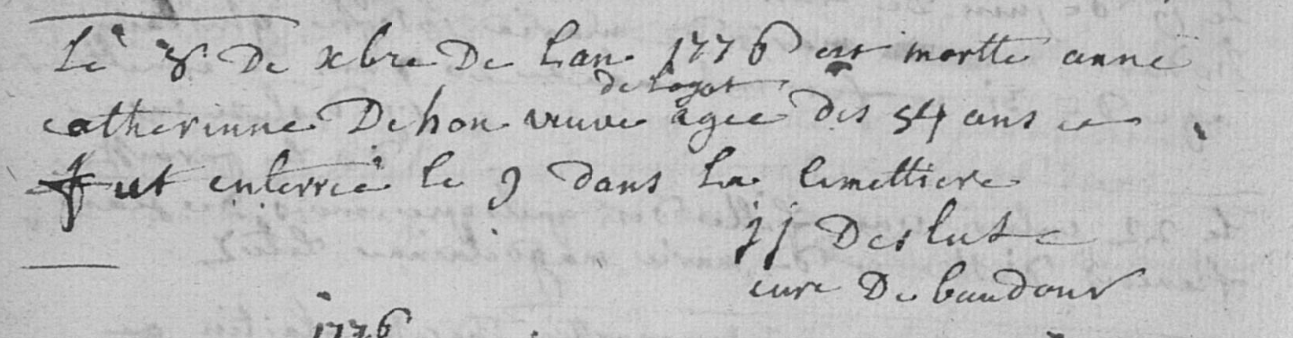 Le 8 De xbre De Lan 1776 est mortte anne
de Logot
catherinne Dehon veuve agee des 54 ans et
fut enterrée le 9 dans La Cimettiere
jj Deslut
cure De baudour
1776